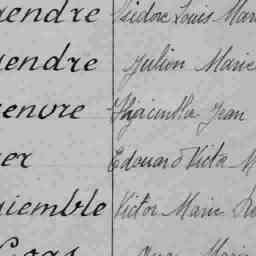 endre Isidore Louis Mari
endre Julien Marie
Hyacinthe Jean
er Edouard Victor M
iemble Victor Marie
Marie